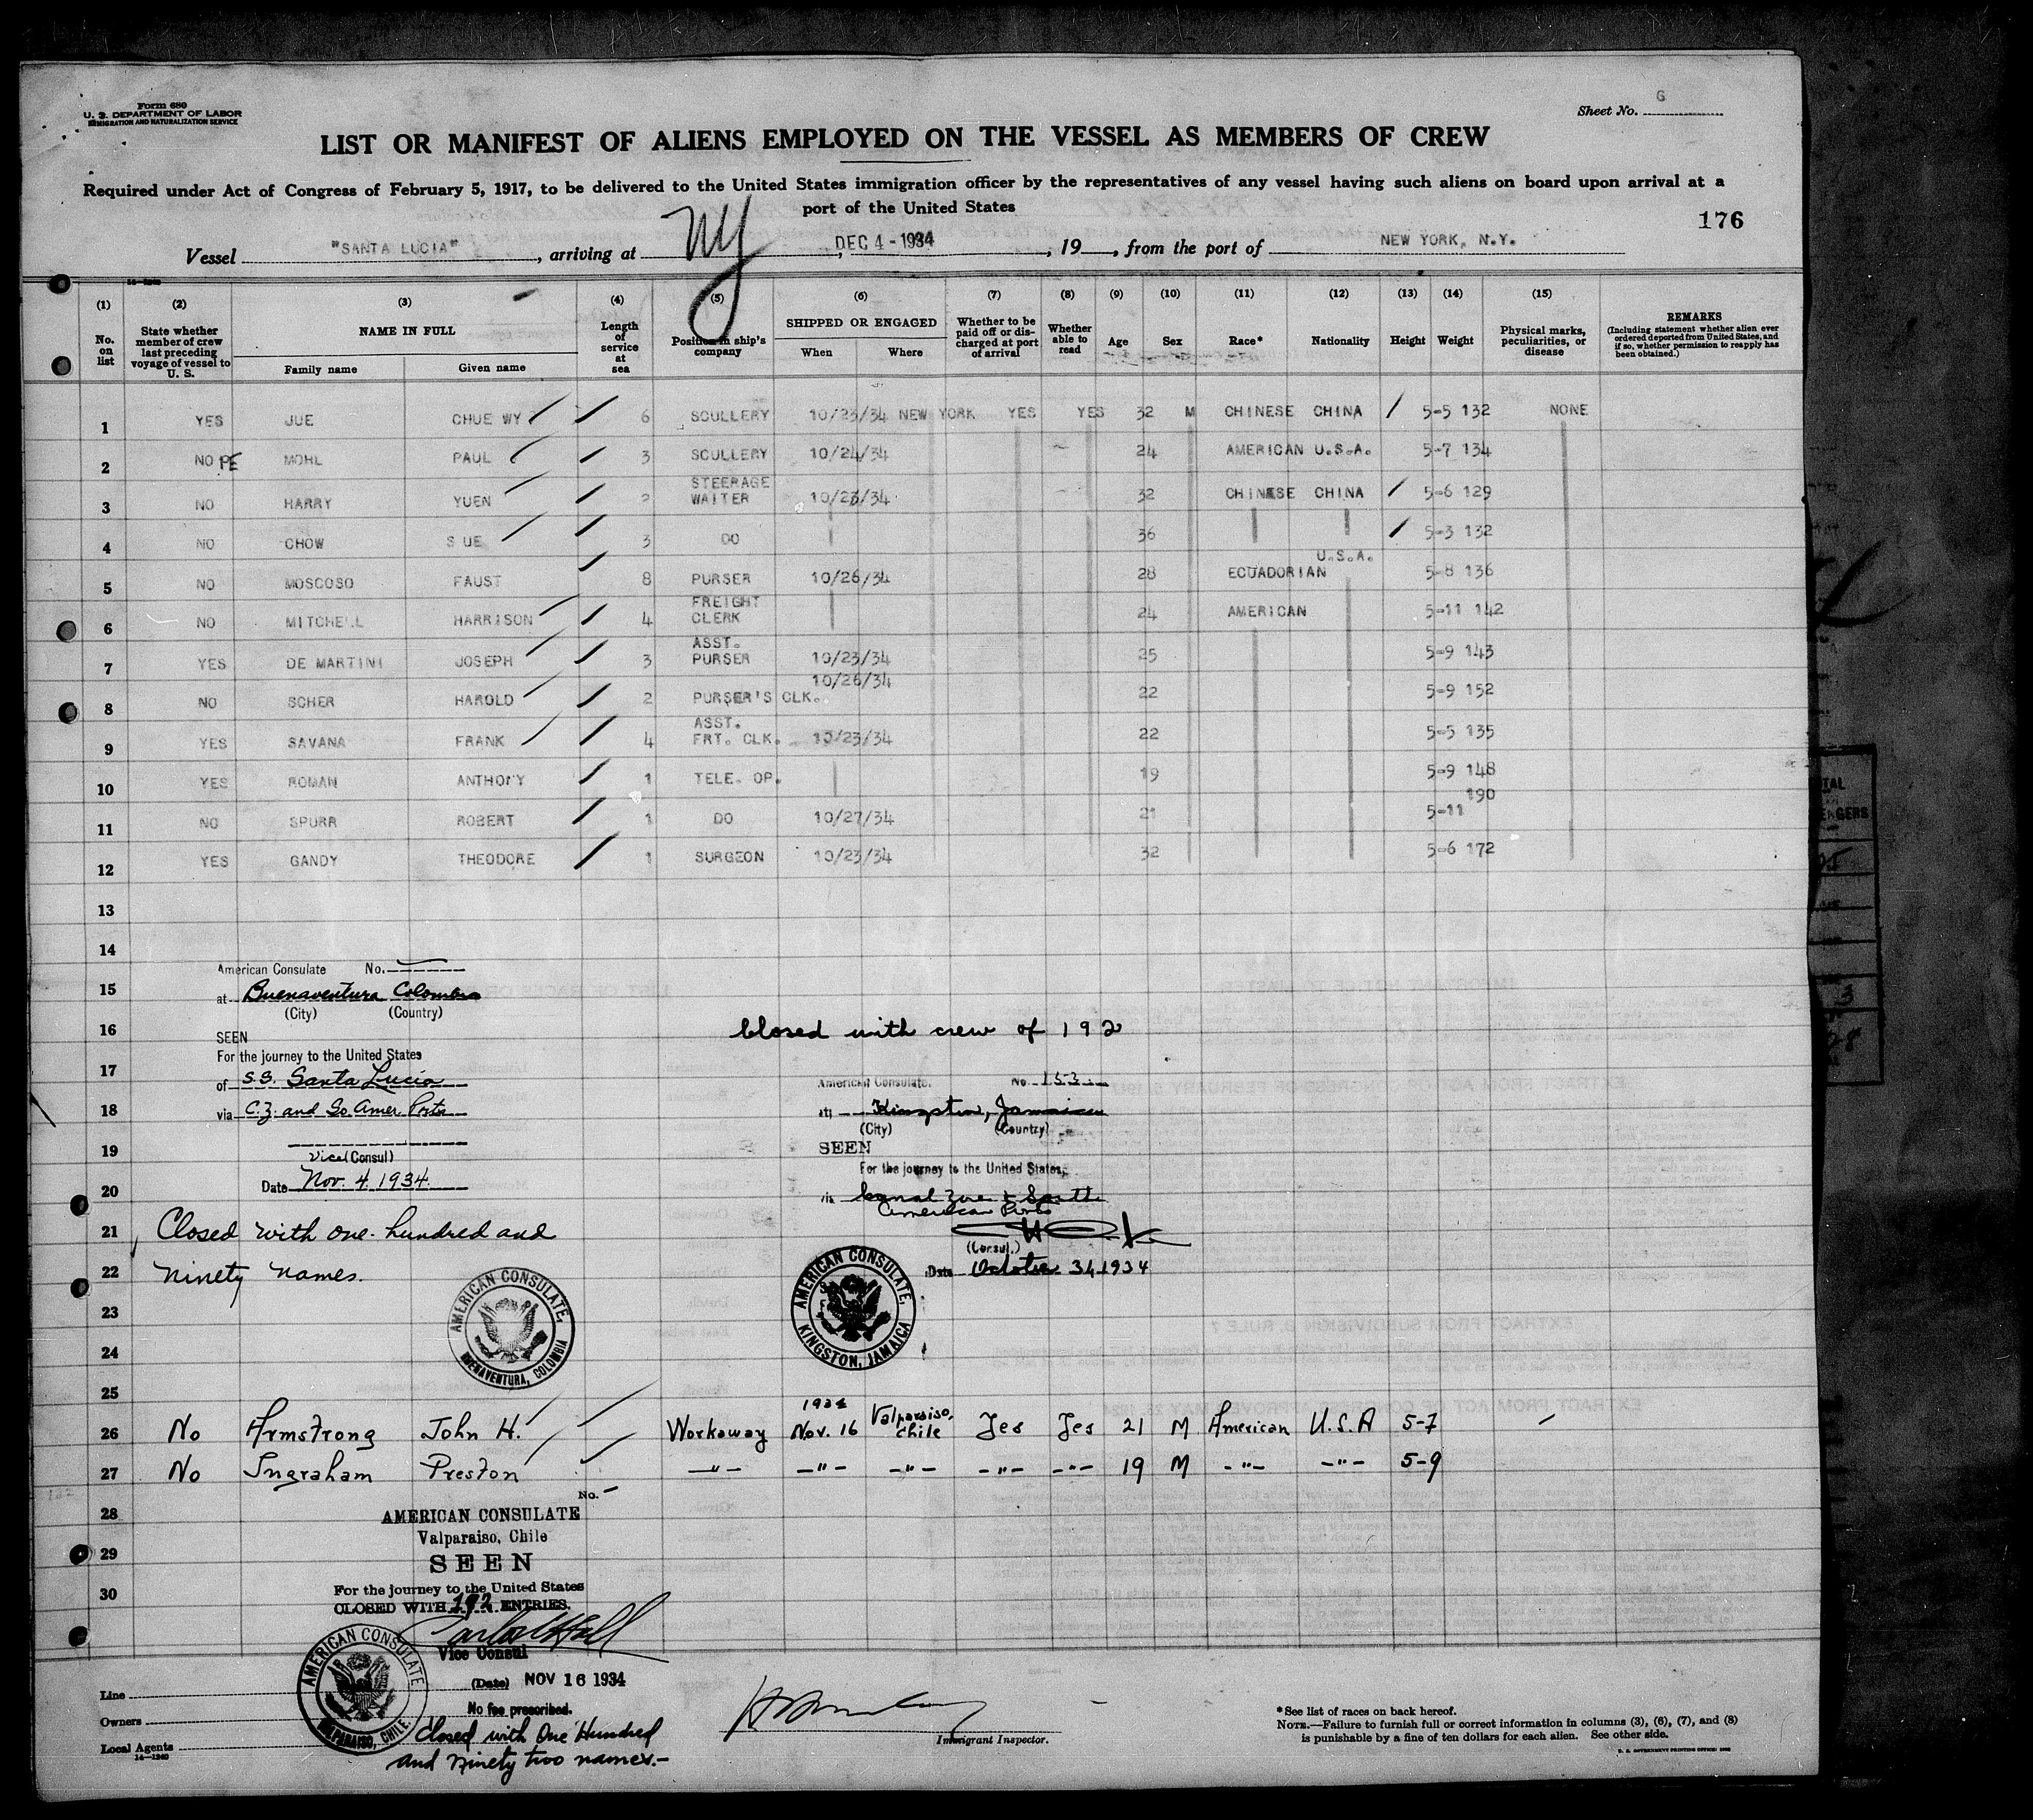 Form 680
U. S. DEPARTMENT OF LABOR
IMMIGRATION AND NATURALIZATION SERVICE
Sheet No. G
LIST OR MANIFEST OF ALIENS EMPLOYED ON THE VESSEL AS MEMBERS OF CREW
Required under Act of Congress of February 5, 1917, to be delivered to the United States immigration officer by the representatives of any vessel having such aliens on board upon arrival at a
port of the United States
176
Vessel "SANTA LUCIA", arriving at NY, DEC 4 - 1934, 19, from the port of NEW YORK, N.Y.
14—1240
(1) (2) (3) (4) (5) (6) (7) (8) (9) (10) (11) (12) (13) (14) (15)
No. on list
State whether member of crew last preceding voyage of vessel to U. S.
NAME IN FULL
Family name Given name
Length of service at sea
Position in ship's company
SHIPPED OR ENGAGED
When Where
Whether to be paid off or discharged at port of arrival
Whether able to read
Age Sex Race* Nationality Height Weight
Physical marks, peculiarities, or disease
REMARKS
(Including statement whether alien ever ordered deported from United States, and if so, whether permission to reapply has been obtained.)
1 YES JUE CHUE WY 6 SCULLERY 10/23/34 NEW YORK YES YES 32 M CHINESE CHINA 5-5 132 NONE
2 NO PE MOHL PAUL 3 SCULLERY 10/24/34 24 AMERICAN U.S.A. 5-7 134
3 NO HARRY YUEN 2 STEERAGE WAITER 10/23/34 32 CHINESE CHINA 5-6 129
4 NO CHOW SUE 3 DO 36 5-3 132
5 NO MOSCOSO FAUST 8 PURSER 10/26/34 28 ECUADORIAN U.S.A. 5-8 136
6 NO MITCHELL HARRISON 4 FREIGHT CLERK 24 AMERICAN 5-11 142
7 YES DE MARTINI JOSEPH 3 ASST. PURSER 10/23/34 25 5-9 143
8 NO SCHER HAROLD 2 PURSER'S CLK. 10/26/34 22 5-9 152
9 YES SAVANA FRANK 4 ASST. FRT. CLK. 10/23/34 22 5-5 135
10 YES ROMAN ANTHONY 1 TELE. OP. 19 5-9 148
11 NO SPURR ROBERT 1 DO 10/27/34 21 5-11 190
12 YES GANDY THEODORE 1 SURGEON 10/23/34 32 5-6 172
13
14
American Consulate No.
15
at Buenaventura Colombia
(City) (Country)
16
SEEN
For the journey to the United States
17
of S.S. Santa Lucia
18
via C.Z. and So Amer Ports
19
Vice (Consul)
Date Nov. 4. 1934
20
21 Closed with one hundred and
22 ninety names.
AMERICAN CONSULATE, BUENAVENTURA, COLOMBIA
closed with crew of 192
American Consulate, No. 153
at Kingston, Jamaica
(City) (Country)
SEEN
For the journey to the United States,
via Canal Zone & South
American Ports
(Consul.)
Date October 31, 1934
AMERICAN CONSULATE, KINGSTON, JAMAICA
23
24
25
26 No Armstrong John H. Workaway 1934 Nov. 16 Valparaiso, Chile Yes Yes 21 M American U.S.A 5-7
27 No Ingraham Preston -"- -"- -"- -"- -"- 19 M -"- -"- 5-9
28
29
30
No. -
AMERICAN CONSULATE
Valparaiso, Chile
SEEN
For the journey to the United States
CLOSED WITH 192 ENTRIES.
Vice Consul
(Date) NOV 16 1934
No fee prescribed.
Closed with One Hundred
and ninety two names.-
AMERICAN CONSULATE VALPARAISO, CHILE.
Line
Owners
Local Agents
14—1240
Immigrant Inspector.
*See list of races on back hereof.
NOTE.—Failure to furnish full or correct information in columns (3), (6), (7), and (8)
is punishable by a fine of ten dollars for each alien. See other side.